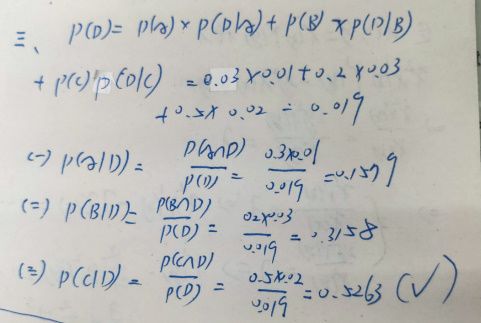 三、 P(D)= P(A)×P(D|A)+P(B)×P(D|B)
+P(C)P(D|C) = 0.03×0.01+0.2×0.03
+0.5×0.02 = 0.019
(一) P(A|D)= P(A∩D)/P(D) = 0.3×0.01/0.019 =0.1579
(二) P(B|D)= P(B∩D)/P(D) = 0.2×0.03/0.019 = 0.3158
(三) P(C|D) = P(C∩D)/P(D) = 0.5×0.02/0.019 = 0.5263 (✓)